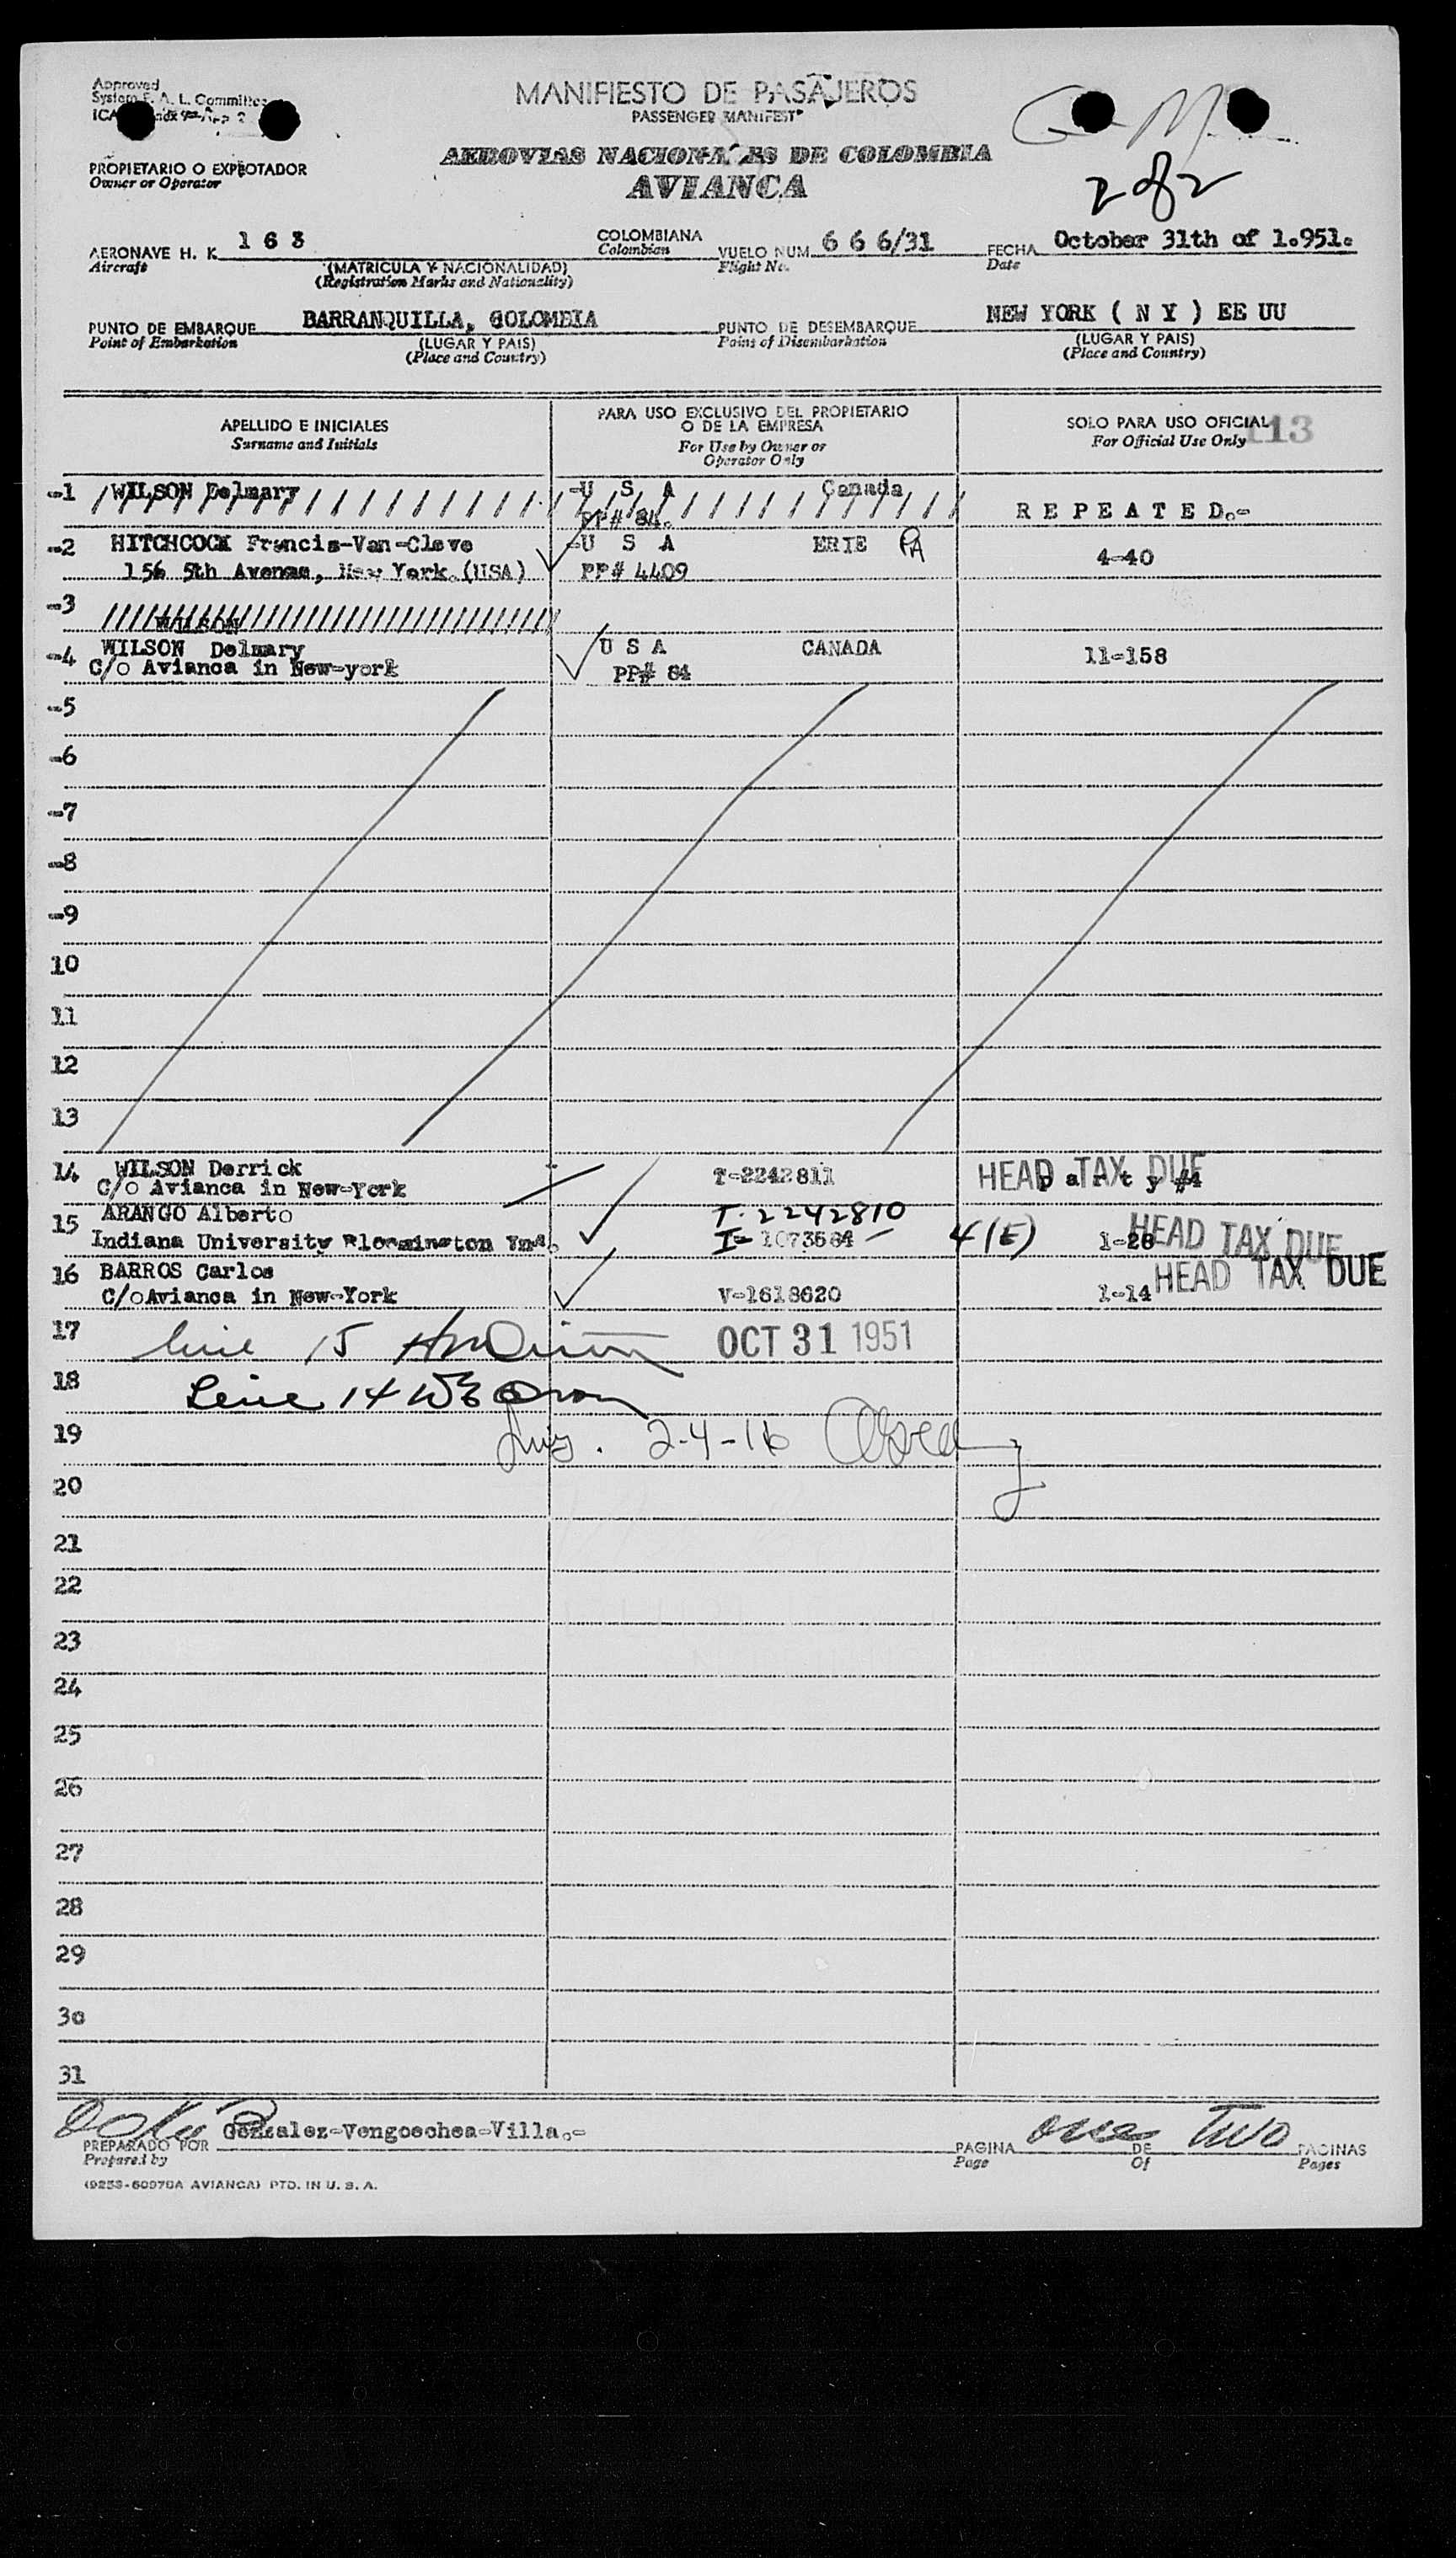 Approved
System F. A. L. Committee
MANIFIESTO DE PASAJEROS
PASSENGER MANIFEST
AEROVIAS NACIONALES DE COLOMBIA
AVIANCA
2 of 2
PROPIETARIO O EXPLOTADOR
Owner or Operator
AERONAVE H. K. 1 6 3 COLOMBIANA VUELO NUM. 6 6 6/31 FECHA October 31th of 1.951.
Aircraft Colombian Flight No. Date
(MATRICULA Y NACIONALIDAD)
(Registration Marks and Nationality)
PUNTO DE EMBARQUE BARRANQUILLA, COLOMBIA PUNTO DE DESEMBARQUE NEW YORK ( N Y ) EE UU
Point of Embarkation (LUGAR Y PAIS) Point of Disembarkation (LUGAR Y PAIS)
(Place and Country) (Place and Country)
APELLIDO E INICIALES PARA USO EXCLUSIVO DEL PROPIETARIO O DE LA EMPRESA SOLO PARA USO OFICIAL
Surname and Initials For Use by Owner or Operator Only For Official Use Only 113
-1 WILSON Delmary -U S A Canada
PP# 84. R E P E A T E D.-
-2 HITCHCOCK Francis-Van-Cleve -U S A ERIE PA
156 5th Avenue, New York (USA) PP# 4409 4-40
-3 WILSON
-4 WILSON Delmary U S A CANADA 11-158
C/o Avianca in New-york PP# 84
-5
-6
-7
-8
-9
10
11
12
13
14 WILSON Derrick T-2242811 HEAD TAX DUE
C/o Avianca in New-York P a r t y #4
15 ARANGO Alberto T-2242810
Indiana University Bloomington I- 1073584 4(E) 1-28 HEAD TAX DUE
16 BARROS Carlos HEAD TAX DUE
C/o Avianca in New-York V-1618620 1-14
17 line 15 OCT 31 1951
18 Line 14
19 2-4-16
20
21
22
23
24
25
26
27
28
29
30
31
Gonzalez-Vengoechea-Villa.-
PREPARADO POR PAGINA one DE Two PAGINAS
Prepared by Page Of Pages
(9253-60970A AVIANCA) PTD. IN U. S. A.